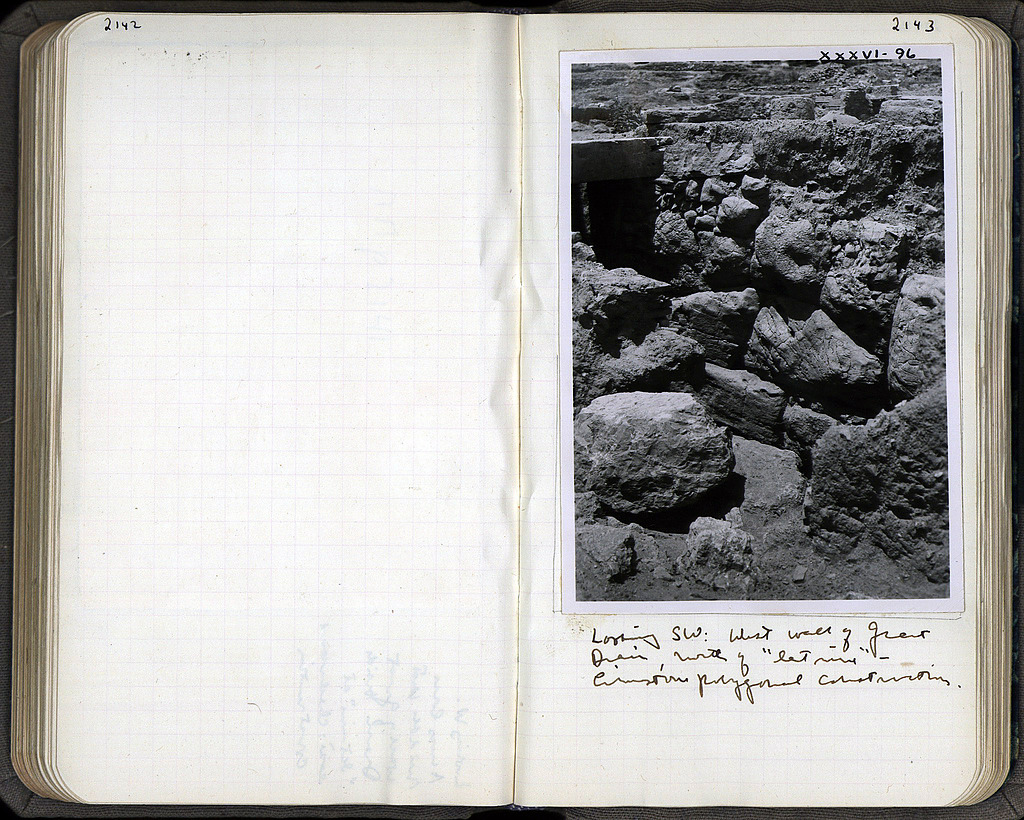 2142
2143
XXXVI-96
Looking SW: West wall of Great
Drain, north of "latrine" –
limestone polygonal construction.